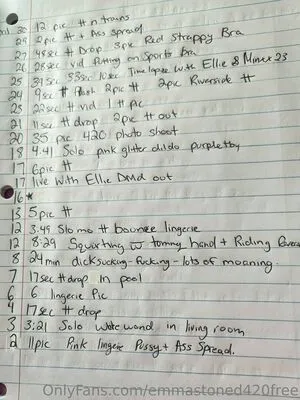 30 12 pic # n trans
29 2pic # + Ass spread
27 48sec # Drop 3pic Red Strappy Bra
26 28sec vid Putting on Sports Bra
25 31sec 53sec 10sec Timelapse with Ellie & Minxx 23
24 9sec # flash 2pic # 2pic Riverside #
23 22sec # vid 1 # pic
21 11sec # drop 2pic # out
20 35 pic 420 photo shoot
18 4:41 Solo pink glitter dildo purple toy
17 6pic #
17 live with Ellie Dmd out
16 *
13 5 pic #
12 3:49 Slomo # bounce lingerie
12 8:29 Squirting w tommy hand + Riding
8 24min dicksucking - fucking - lots of moaning.
7 17sec # drop in pool
6 6 lingerie Pic
4 17sec # drop
3 3:21 Solo wand in living room
2 11pic Pink lingerie Pussy + Ass Spread.
OnlyFans.com/emmastoned420free